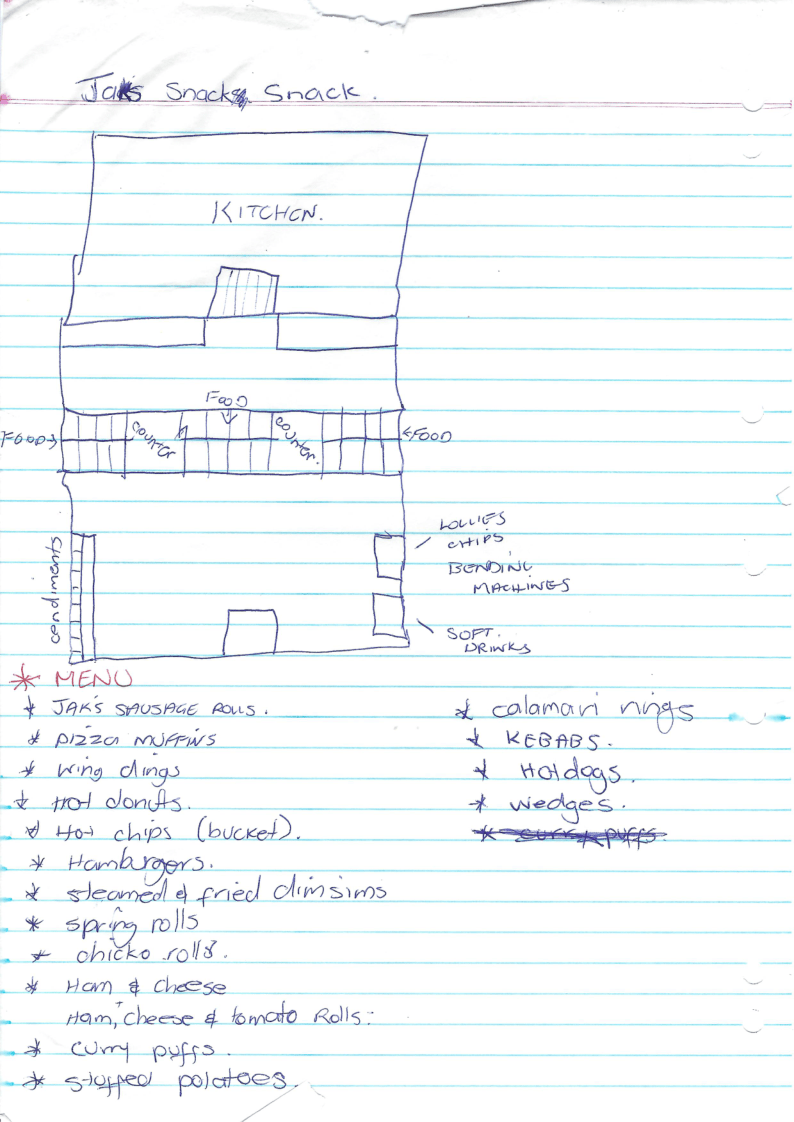 Jak's Snack Snack.
KITCHEN.
FOOD
FOOD→
counter
counter.
←FOOD
LOLLIES
CHIPS
BENDING
MACHINES
SOFT.
DRINKS
condiments
* MENU
* JAK'S SAUSAGE ROLLS.
* PIZZA MUFFINS
* wing dings
* Hot donuts.
* Hot chips (bucket).
* Hamburgers.
* steamed & fried dimsims
* spring rolls
* chicko rolls.
* Ham & cheese
Ham, cheese & tomato Rolls:
* curry puffs.
* stuffed potatoes.
* calamari rings
* KEBABS.
* Hotdogs.
* wedges.
* curry puffs.